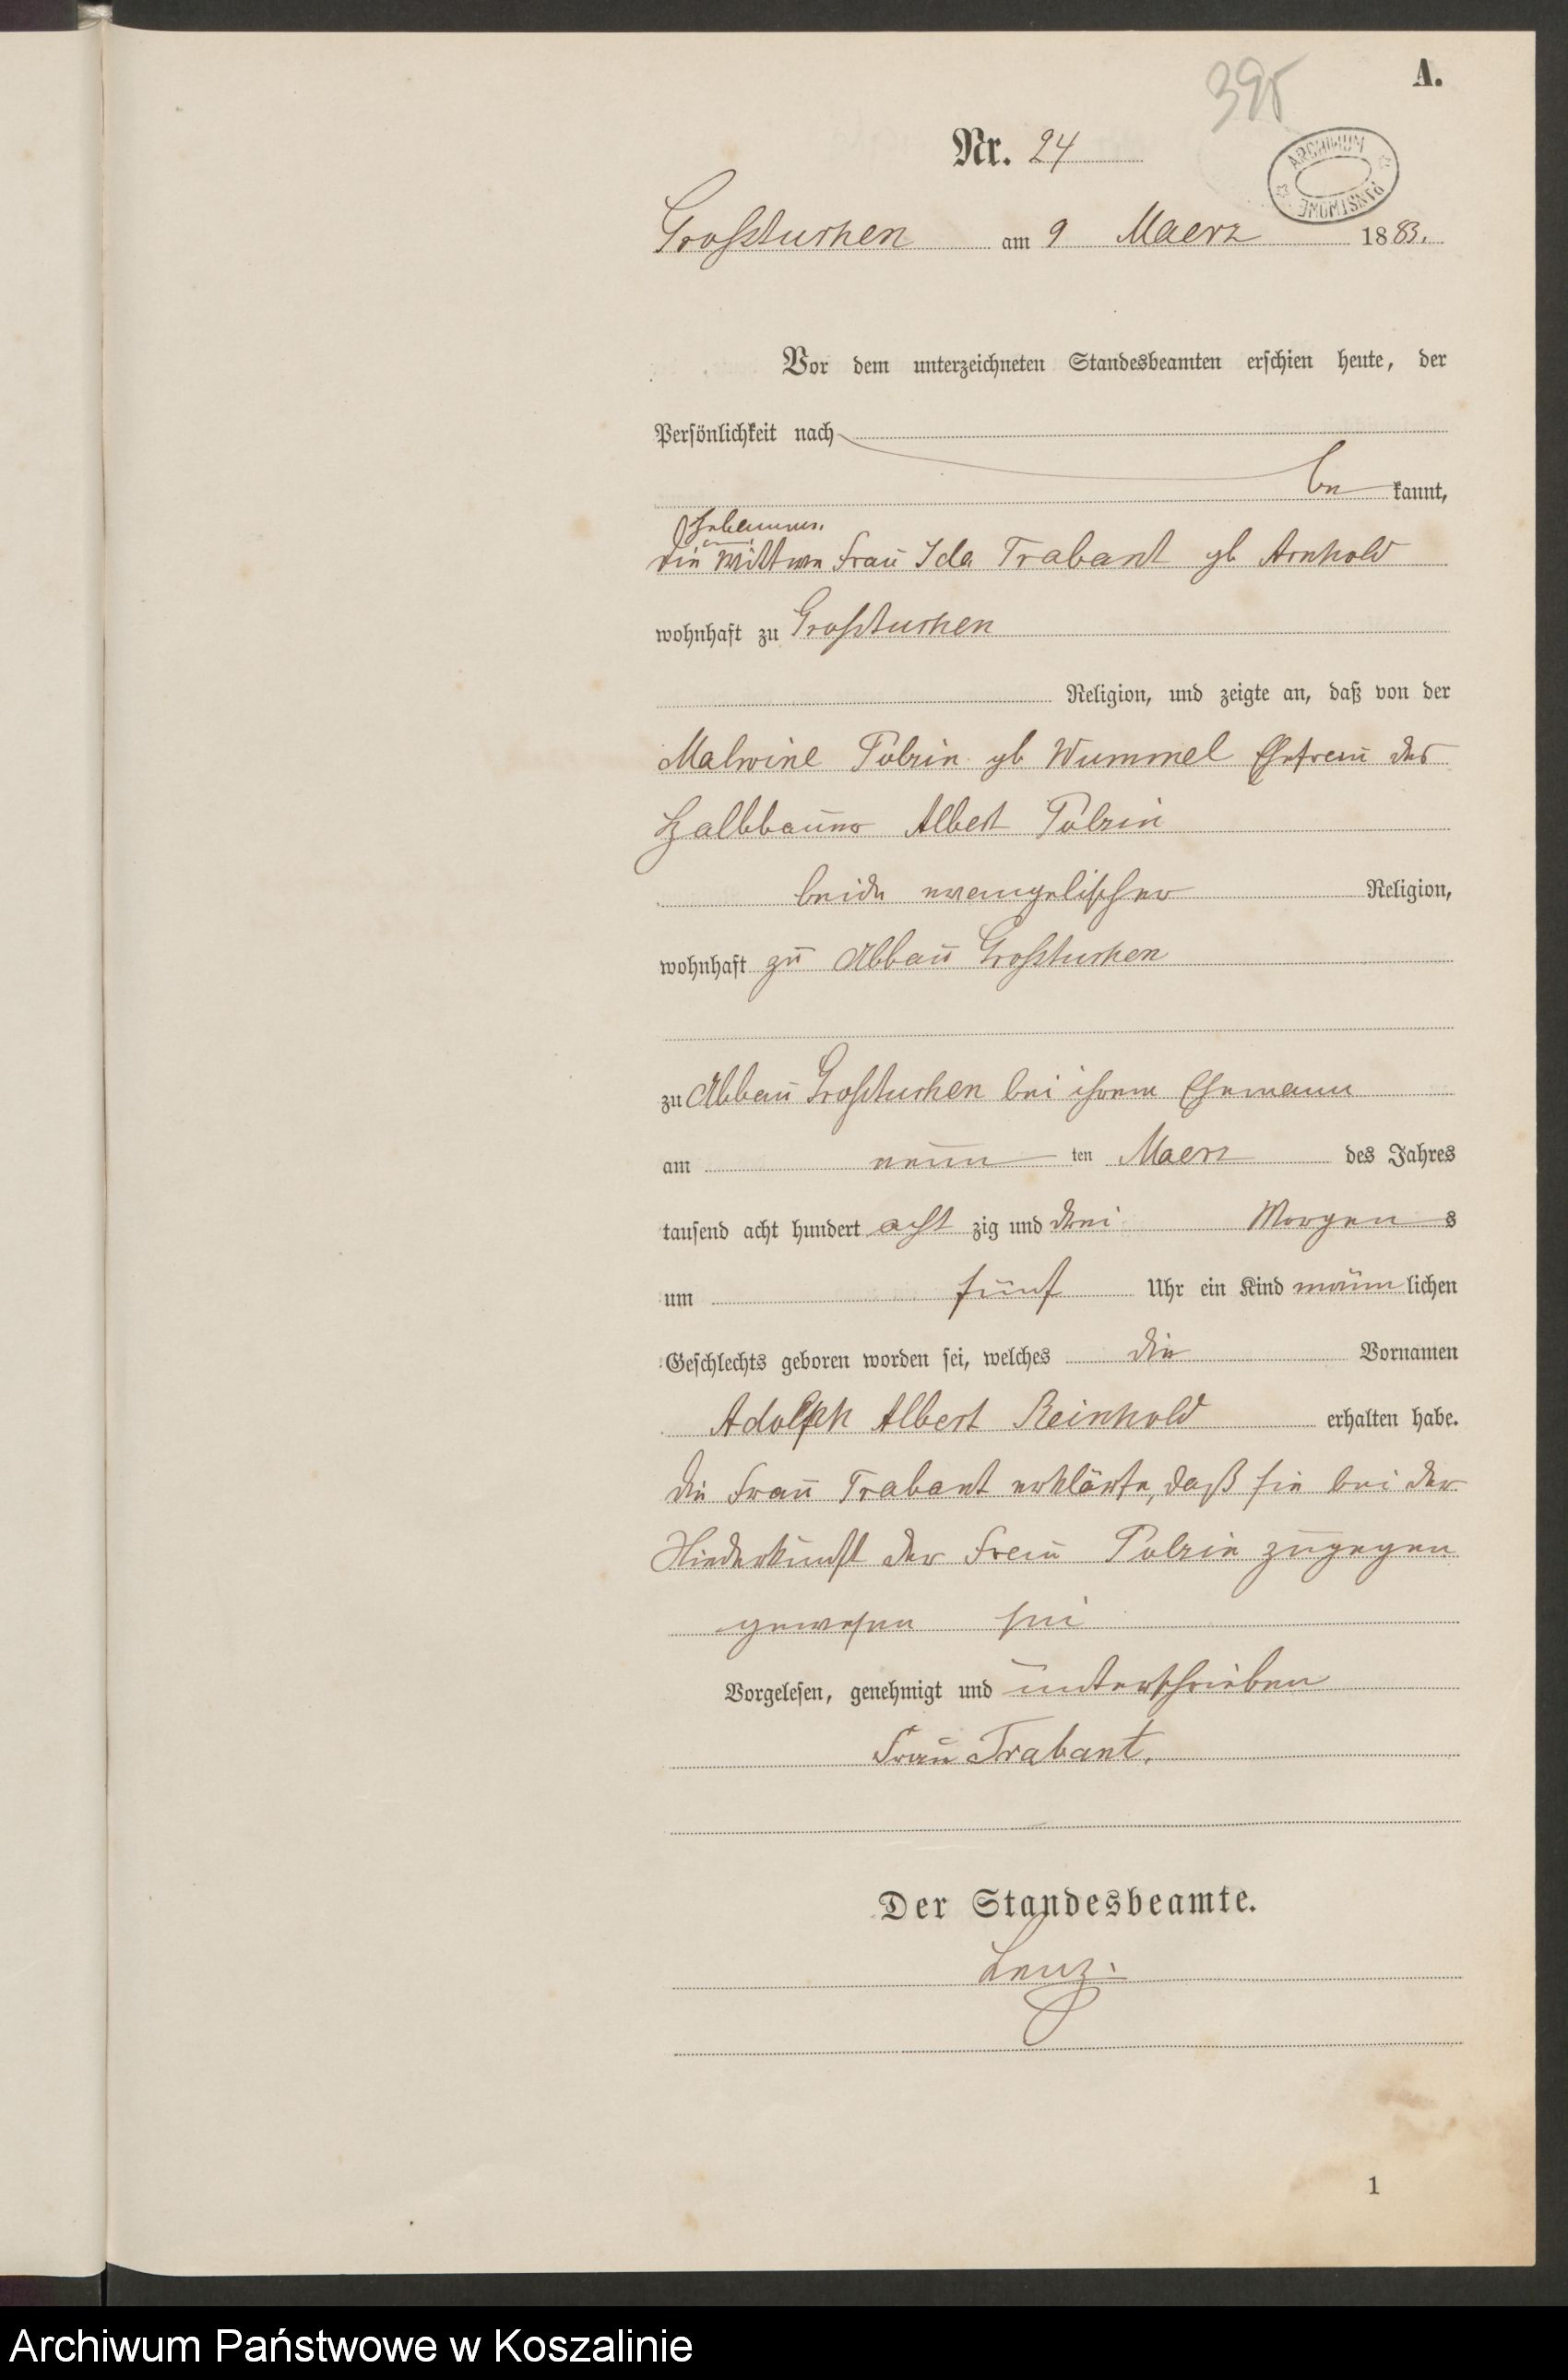 395
A.
Nr. 24
ARCHIWUM PAŃSTWOWE
Großtuchen am 9 Maerz 1883.
Vor dem unterzeichneten Standesbeamten erschien heute, der
Persönlichkeit nach
be kannt,
Hebamme
die Wittwe Frau Ida Trabant gb Arnhold
wohnhaft zu Großtuchen
Religion, und zeigte an, daß von der
Malwine Polzin gb Wummel Ehefrau des
Halbbauer Albert Polzin
beide evangelischer Religion,
wohnhaft zu Abbau Großtuchen
zu Abbau Großtuchen bei ihrem Ehemann
am neun ten Maerz des Jahres
tausend acht hundert acht zig und drei Morgen s
um fünf Uhr ein Kind männ lichen
Geschlechts geboren worden sei, welches die Vornamen
Adolph Albert Reinhold erhalten habe.
Die Frau Trabant erklärte, daß sie bei der
Niederkunft der Frau Polzin zugegen
gewesen sei
Vorgelesen, genehmigt und unterschrieben
Frau Trabant.
Der Standesbeamte.
Lenz.
1
Archiwum Państwowe w Koszalinie